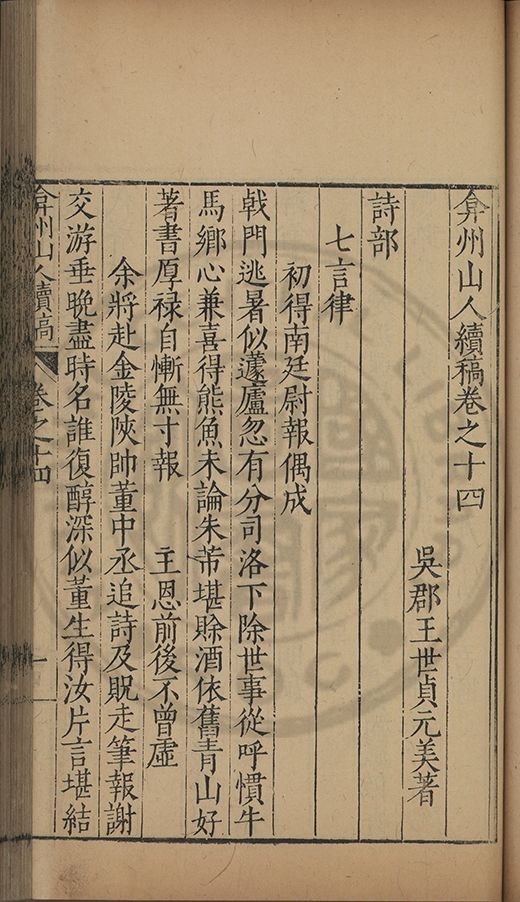 弇州山人續稿卷之十四
吳郡王世貞元美著
詩部
七言律
初得南廷尉報偶成
戟門逃暑似蘧廬忽有分司洛下除世事從呼慣牛
馬鄉心兼喜得熊魚未論朱芾堪賒酒依舊青山好
著書厚禄自慚無寸報 主恩前後不曾虛
余將赴金陵陝帥董中丞追詩及貺走筆報謝
交游垂晚盡時名誰復醇深似董生得汝片言堪結
弇州山人續稿 卷之十四 一